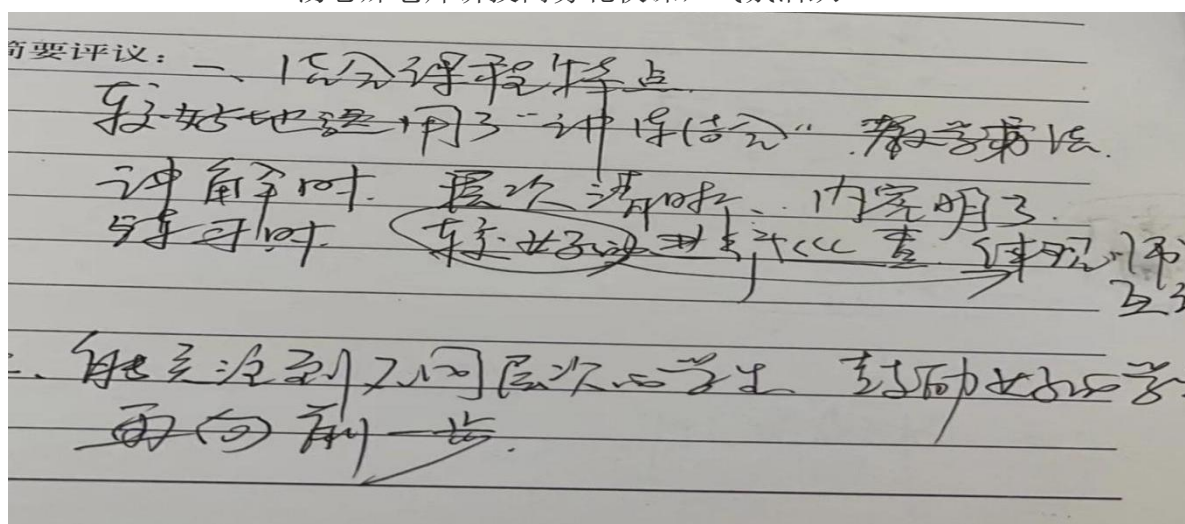 简要评议：一、结合课程特点
较好地运用了“讲练结合”教学方法.
讲解时. 层次清晰、内容明了.
练习时. 较好 进行 查. 体现师
互
二、能关注到不同层次的学生. 鼓励好的学
再向前一步.